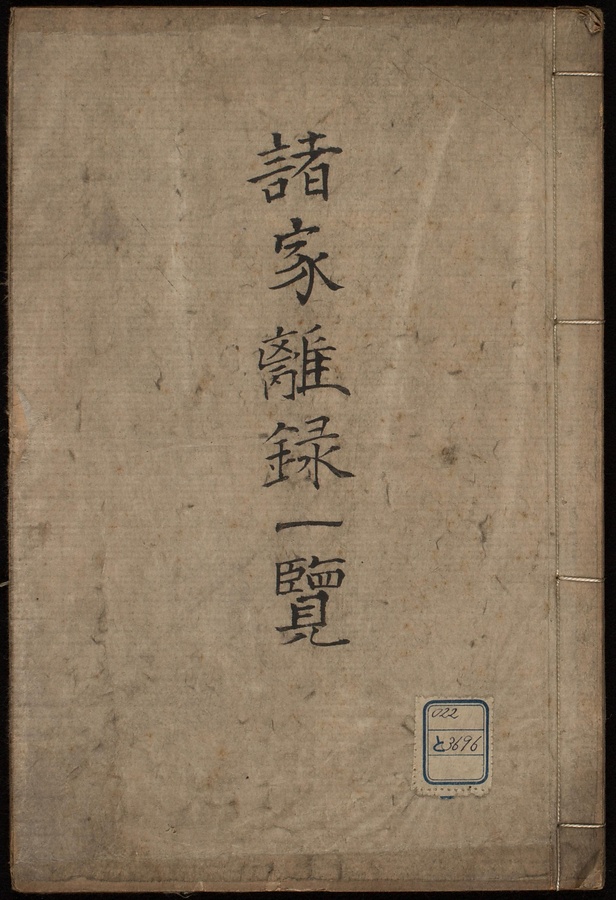 諸家離録一覽
022
と3696